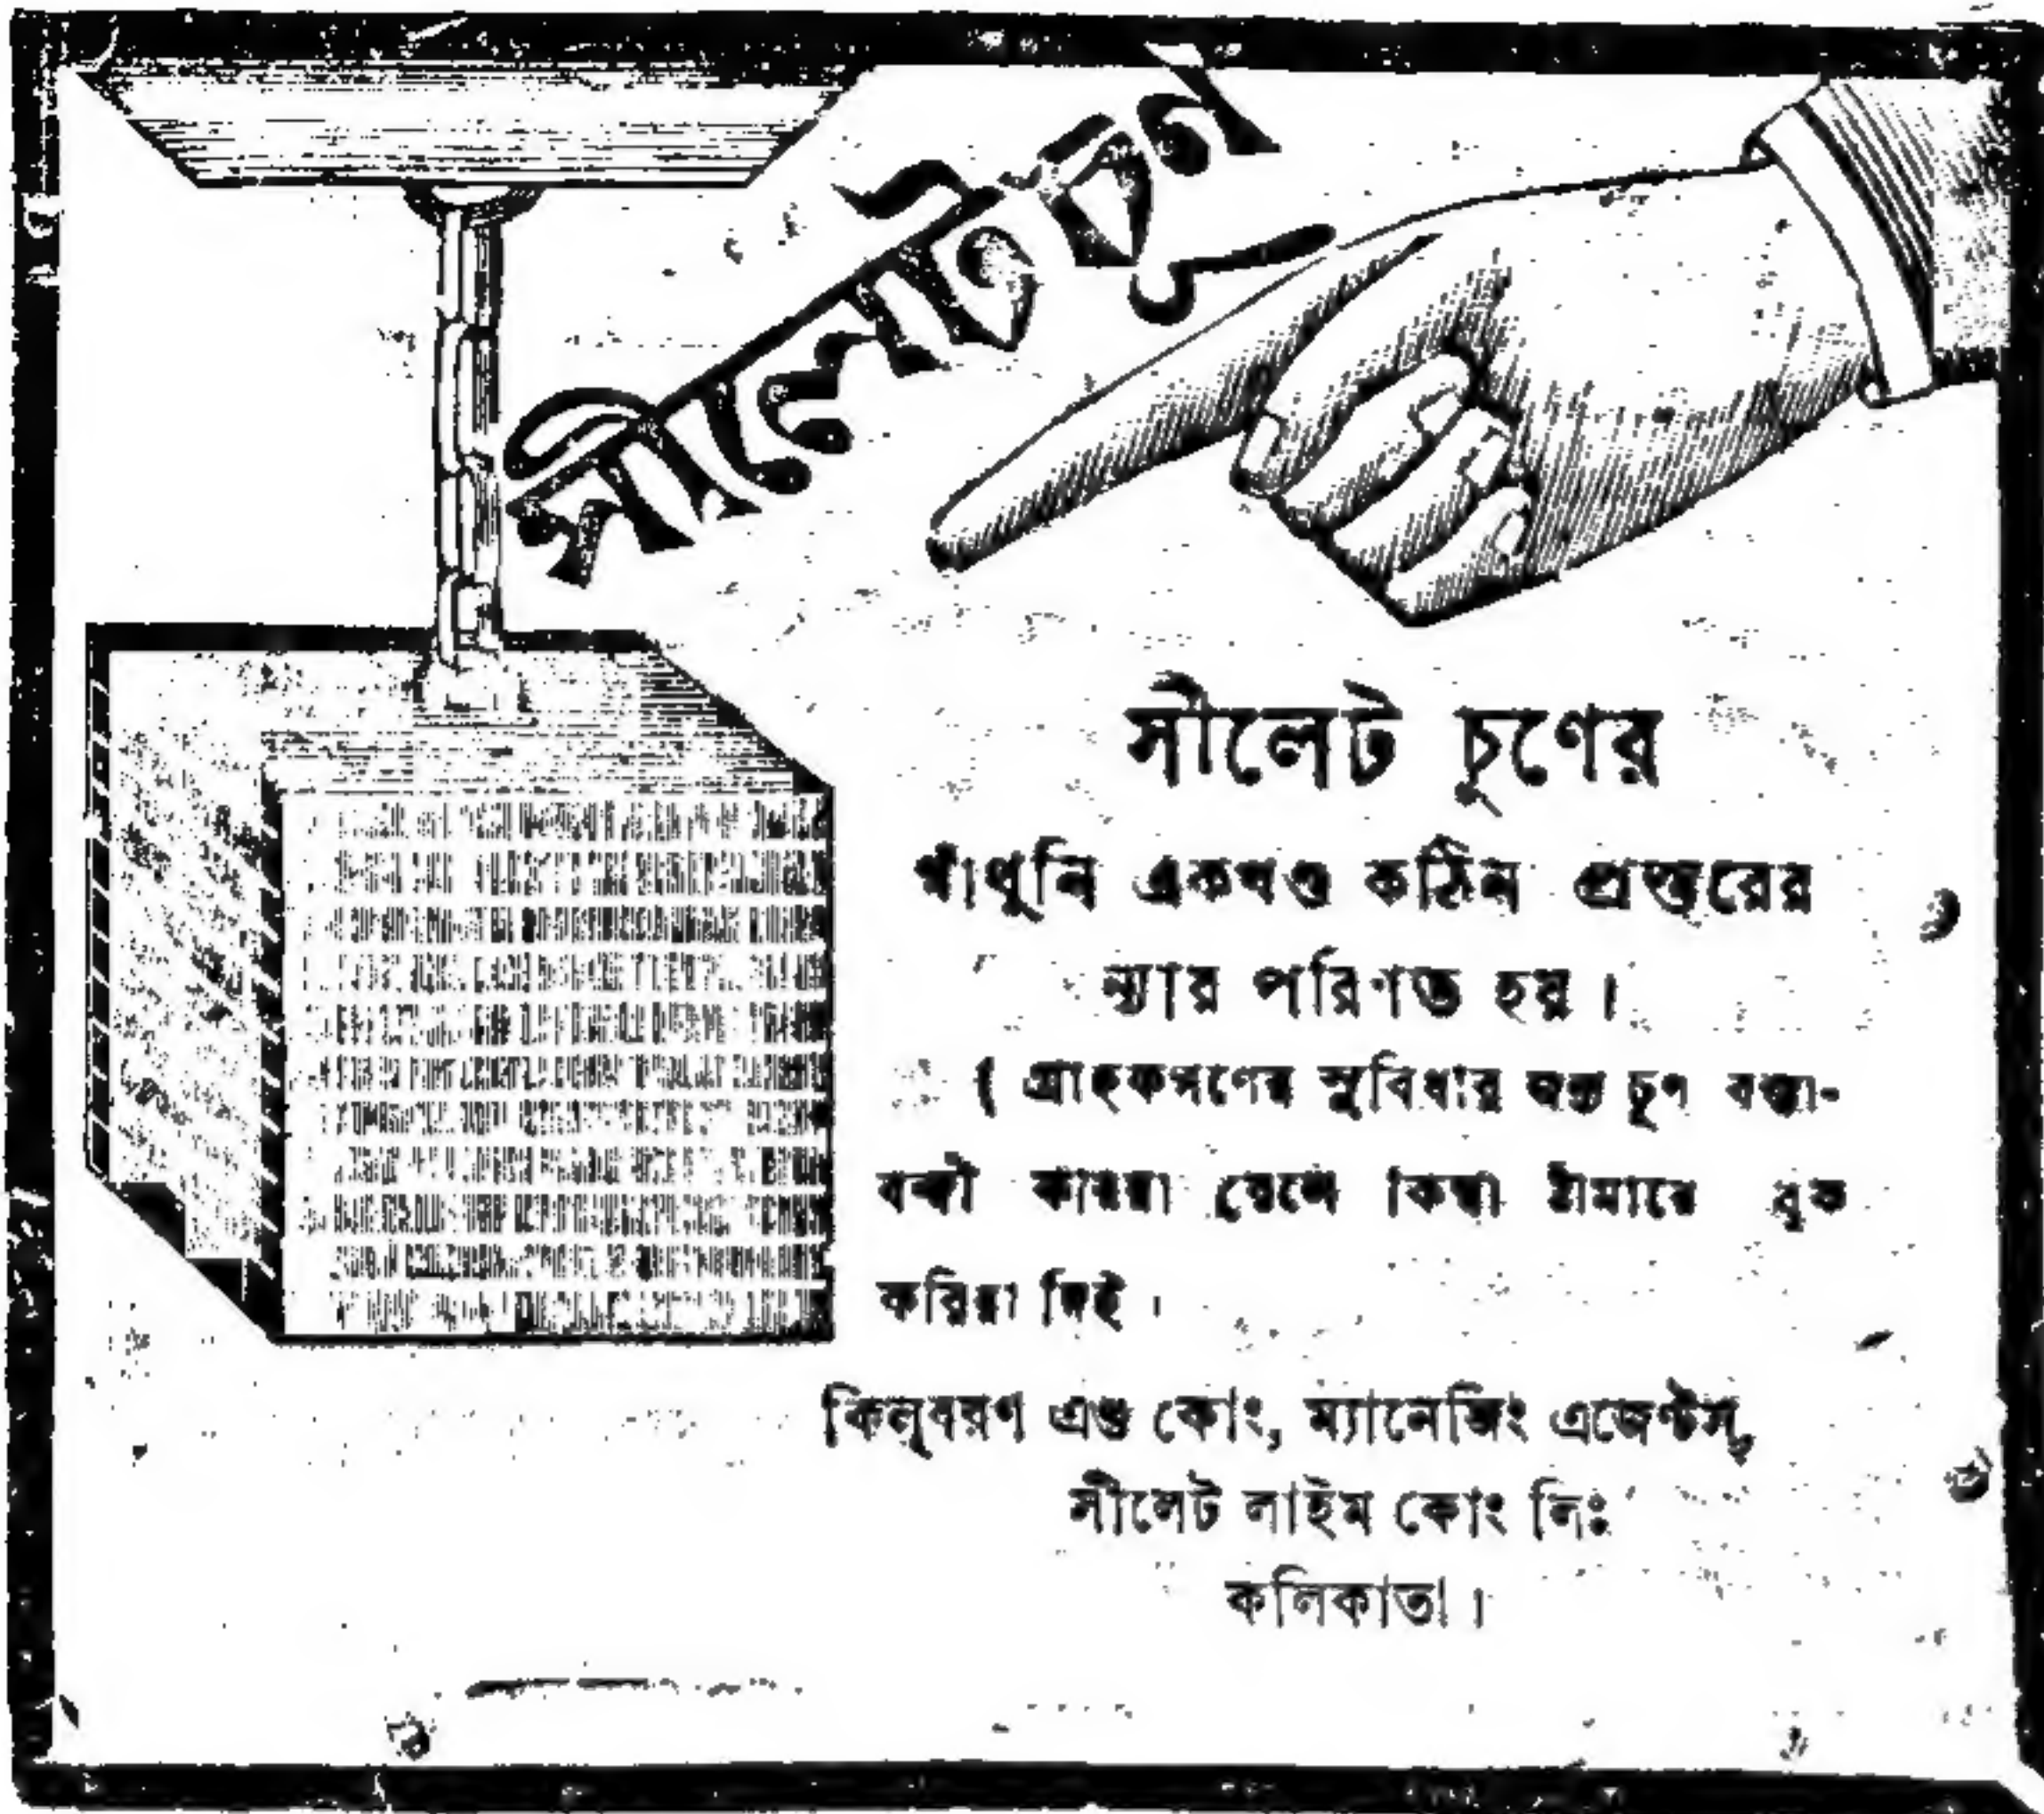 সীলেট চূণ
সীলেট চূণের
গাঁথুনি একখণ্ড কঠিন প্রস্তরের
ন্যায় পরিণত হয়।
( গ্রাহকগণের সুবিধার জন্য চূণ বস্তা-
বন্দী করিয়া রেলে কিম্বা ষ্টীমারে বুক
করিয়া দিই।
কিল্‌বরণ এণ্ড কোং, ম্যানেজিং এজেণ্টস্,
সীলেট লাইম কোং লিঃ
কলিকাতা।